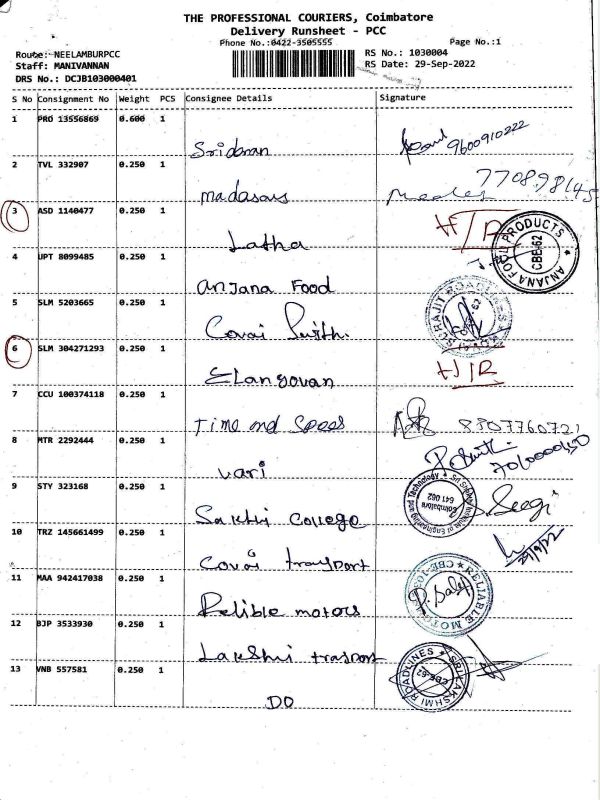 THE PROFESSIONAL COURIERS, Coimbatore
Delivery Runsheet - PCC
Phone No.:0422-3505555
Page No.:1
Route: NEELAMBURPCC
Staff: MANIVANNAN
DRS No.: DCJB103000401
RS No.: 1030004
RS Date: 29-Sep-2022
S No Consignment No Weight PCS Consignee Details Signature
1 PRO 13556869 0.600 1
Sridaran 9600910222
2 TVL 332907 0.250 1
madasamy 770898145
3 ASD 1140477 0.250 1
Latha H/R
4 UPT 8099485 0.250 1
Anjana Food
ANJANA FOOD PRODUCTS
CBE-62
5 SLM 5203665 0.250 1
Covai
6 SLM 304271293 0.250 1
Elangovan H/R
7 CCU 100374118 0.250 1
Time and Speed 8807760721
8 MTR 2292444 0.250 1
vari
9 STY 323168 0.250 1
Sakthi College
Institute of Engineering and Technology
Coimbatore
641 062
10 TRZ 145661499 0.250 1
Covai transport 29/9/22
11 MAA 942417038 0.250 1
Relible motors
RELIABLE MOTORS
12 BJP 3533930 0.250 1
Lakshmi trasport
SRI LAKSHMI ROADLINES
CBE-62
13 VNB 557581 0.250 1
DO